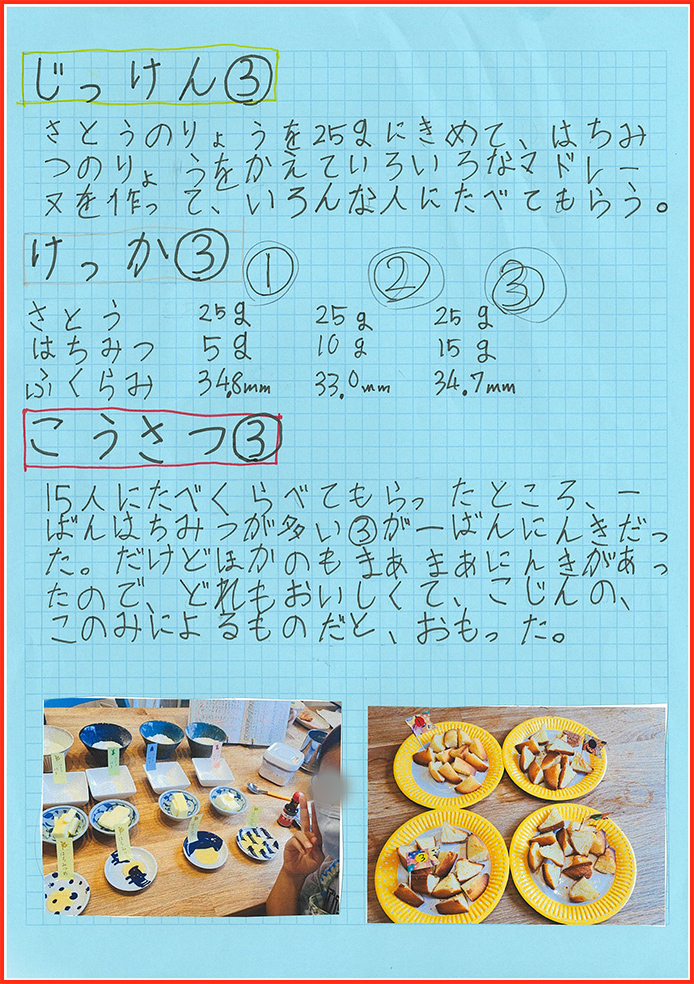 じっけん③
さとうのりょうを25gにきめて、はちみ
つのりょうをかえていろいろなマドレー
ヌを作って、いろんな人にたべてもらう。
けっか③
① ② ③
さとう 25g 25g 25g
はちみつ 5g 10g 15g
ふくらみ 34.8mm 33.0mm 34.7mm
こうさつ③
15人にたべくらべてもらったところ、一
ばんはちみつが多い③が一ばんにんきだっ
た。だけどほかのもまあまあにんきがあっ
たので、どれもおいしくて、こじんの、
このみによるものだと、おもった。